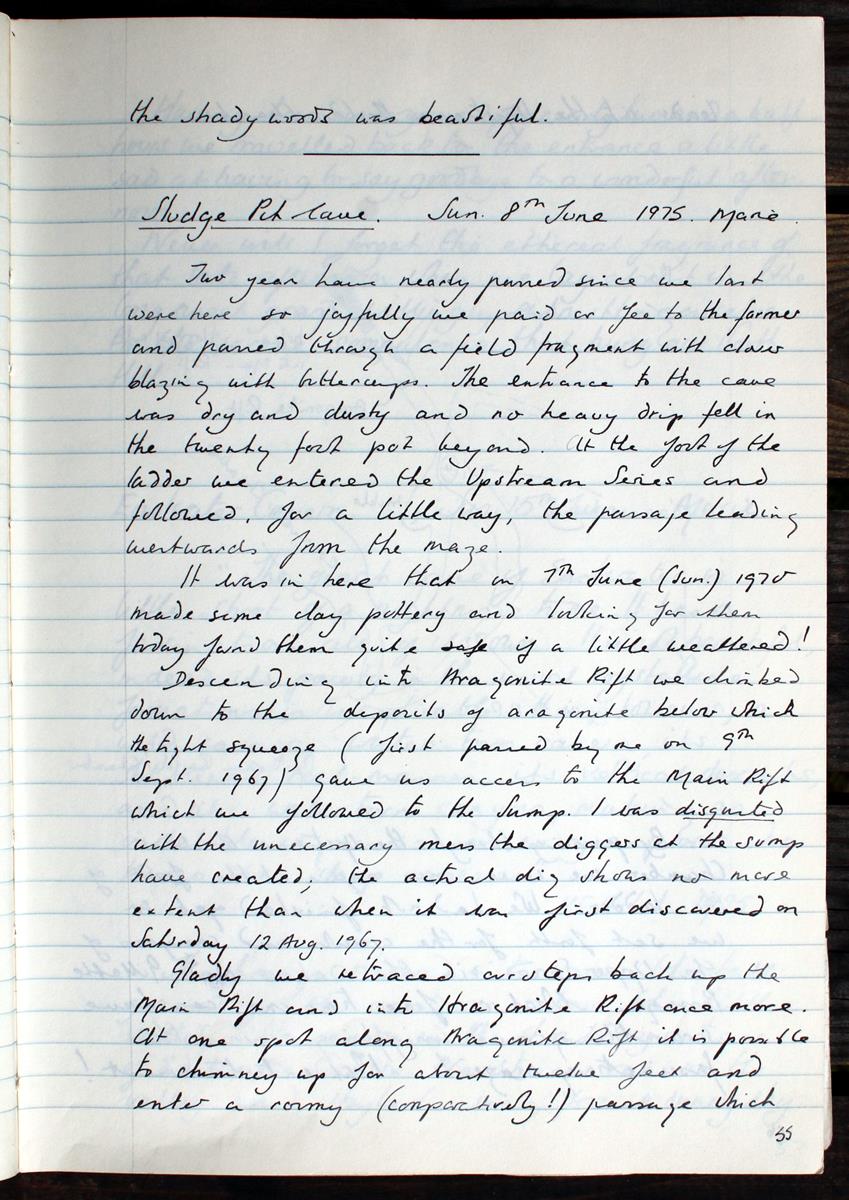 the shady woods was beautiful.
Sludge Pit Cave. Sun. 8th June 1975. Marie.
Two year have nearly passed since we last
were here so joyfully we paid or fee to the farmer
and passed through a field fragment with clover
blazing with buttercups. The entrance to the cave
was dry and dusty and no heavy drip fell in
the twenty foot pot beyond. At the foot of the
ladder we entered the Upstream Series and
followed, for a little way, the passage leading
westwards from the maze.
It was in here that on 7th June (Sun.) 1970
made some clay pottery and looking for them
today found them quite safe if a little weathered!
Descending into Aragonite Rift we climbed
down to the deposits of aragonite below which
the tight squeeze (first passed by me on 9th
Sept. 1967) gave us access to the Main Rift
which we followed to the Sump. I was disgusted
with the unecessary mess the diggers at the sump
have created; the actual dig shows no more
extent than when it was first discovered on
Saturday 12 Aug. 1967.
Gladly we retraced our steps back up the
Main Rift and into Aragonite Rift once more.
At one spot along Aragonite Rift it is possible
to chimney up for about twelve feet and
enter a roomy (comparatively!) passage which
55